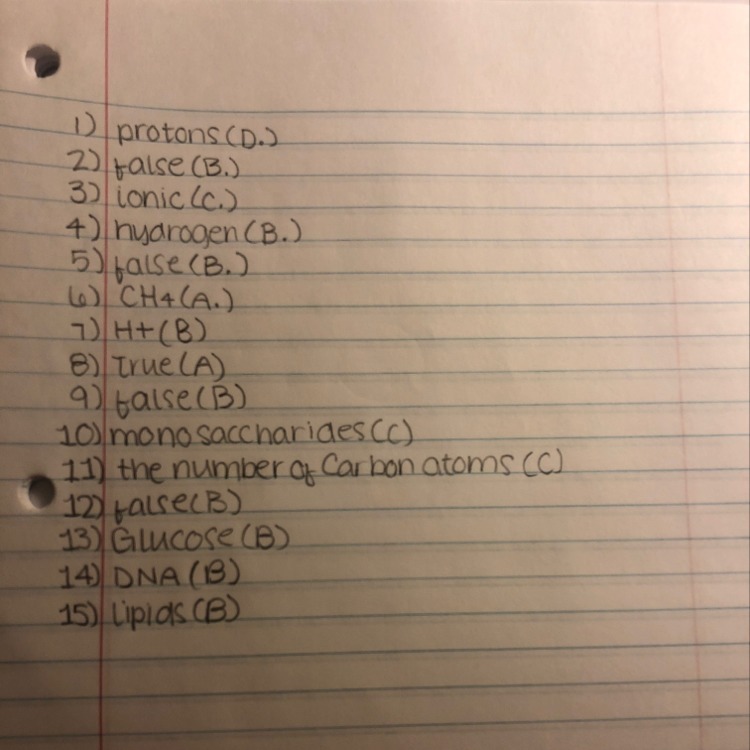 1) protons (D.)
2) false (B.)
3) ionic (C.)
4) hydrogen (B.)
5) false (B.)
6) CH4 (A.)
7) H+ (B)
8) True (A)
9) false (B)
10) monosaccharides (C)
11) the number of Carbon atoms (C)
12) false (B)
13) Glucose (B)
14) DNA (B)
15) Lipids (B)